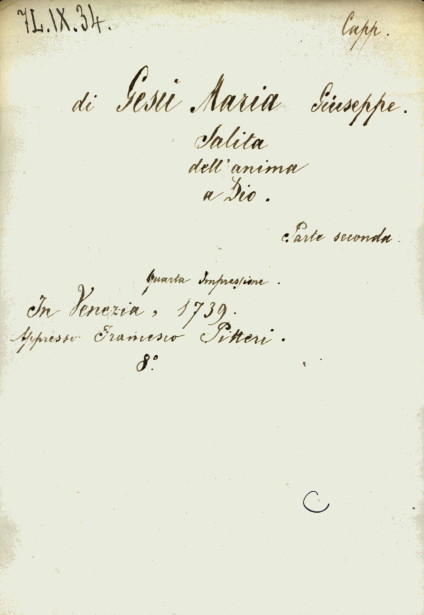 7L.IX.34.
Capp.
di Gesù Maria Giuseppe.
Salita
dell'anima
a Dio.
Parte seconda.
Quarta Impressione.
In Venezia, 1739.
Appresso Francesco Pitteri.
8°
C